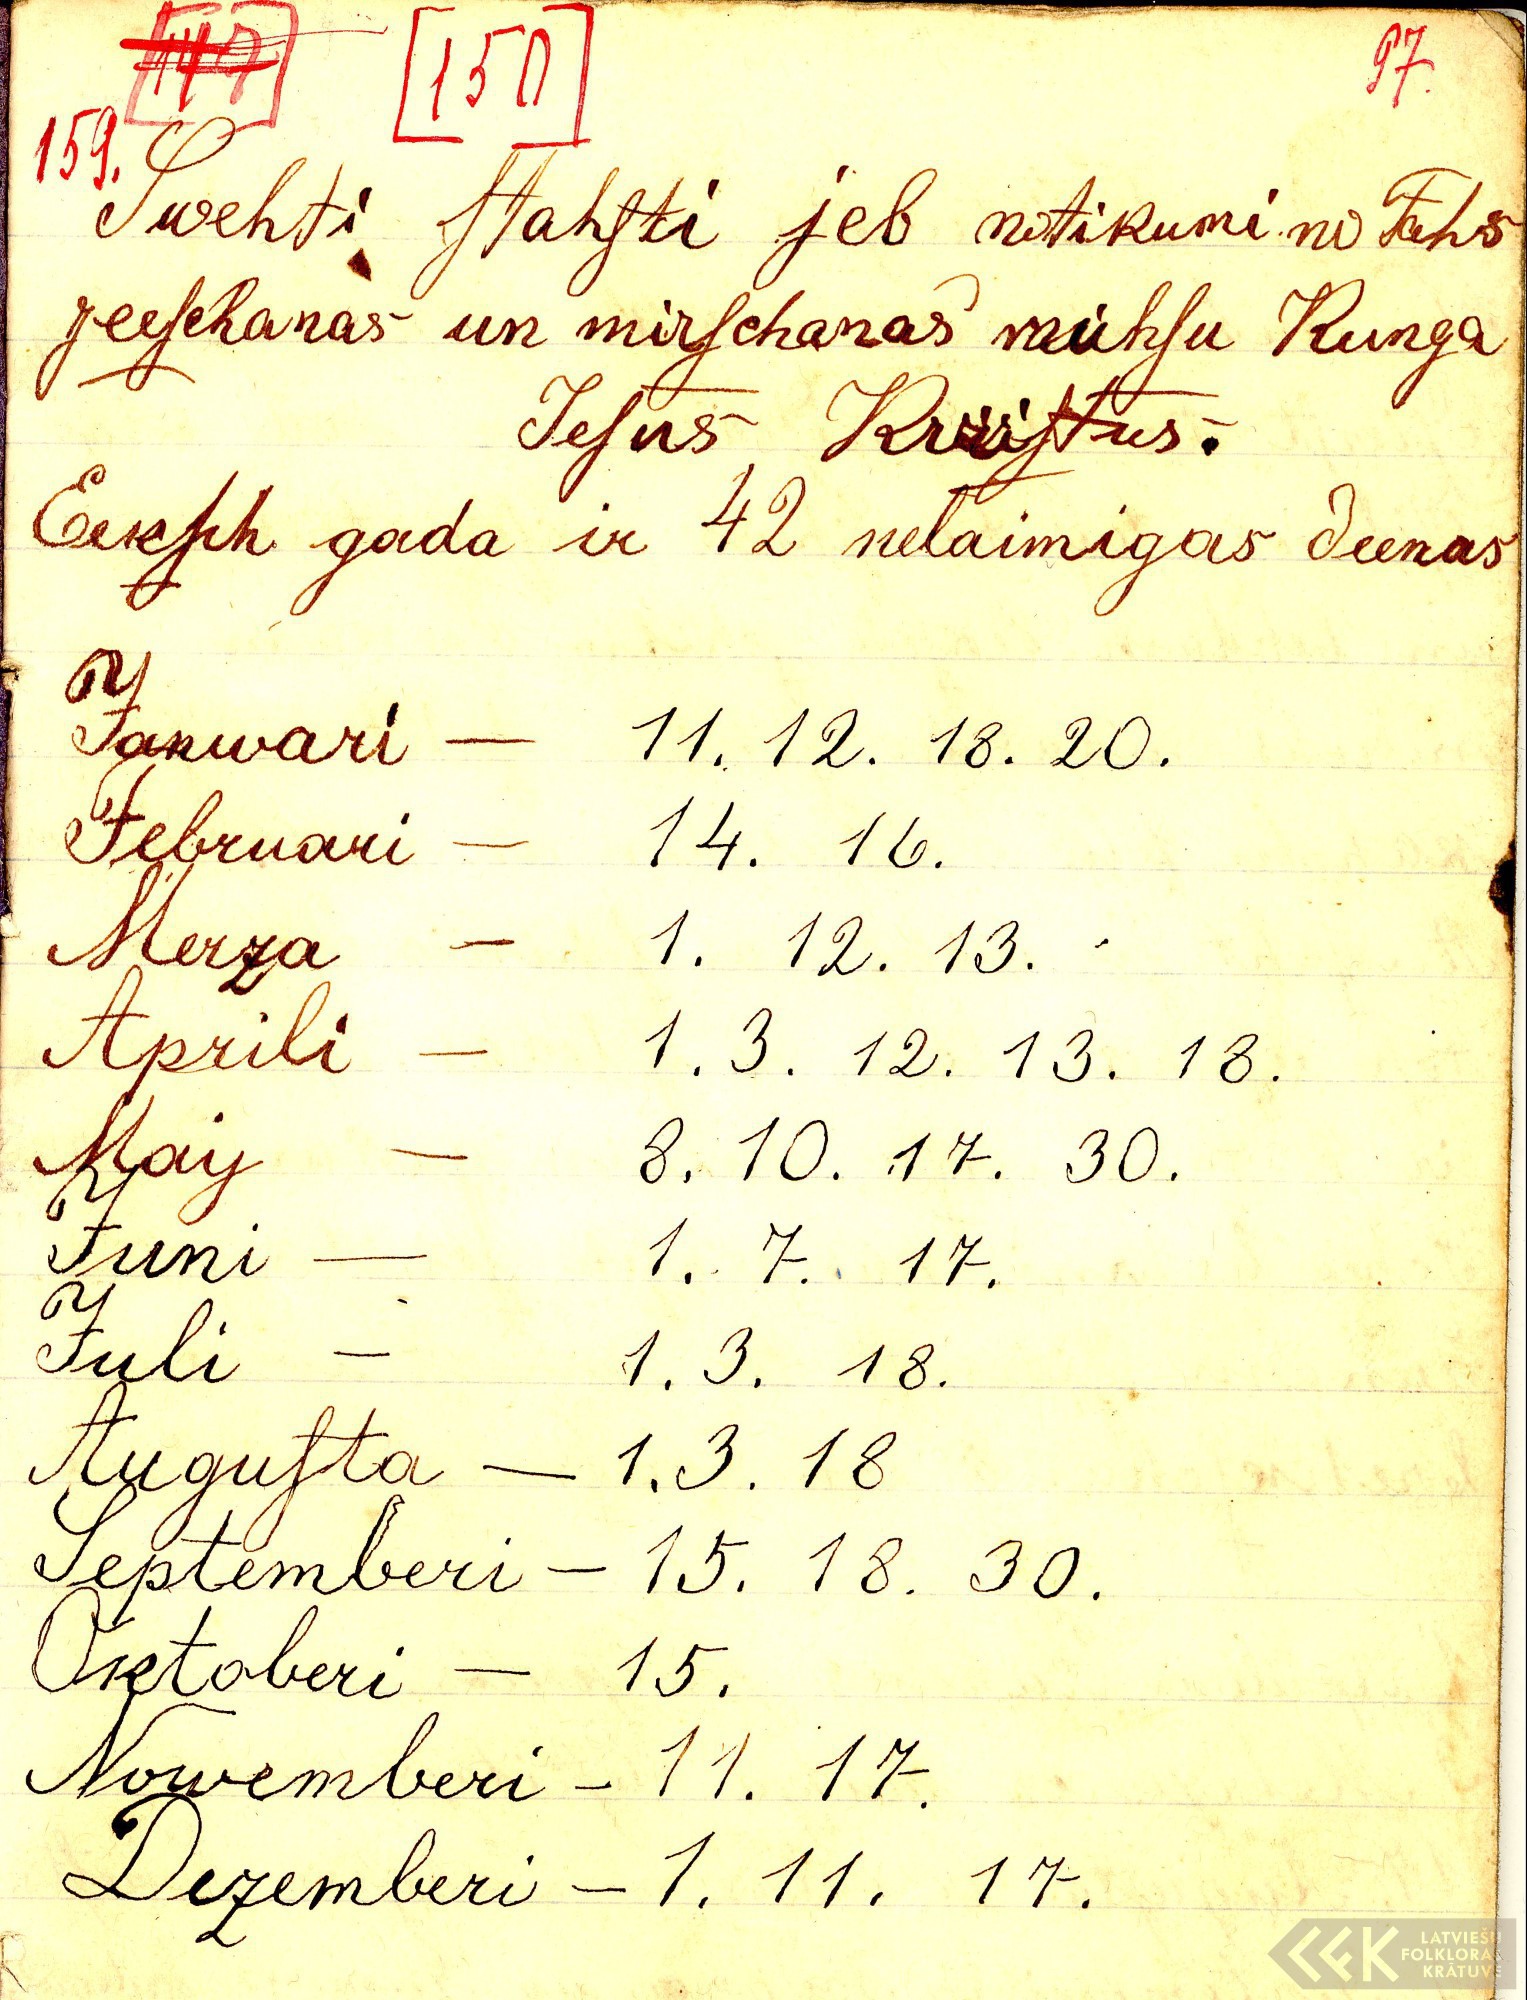 [147] [150] 97.
159. Swehti ſtahſti jeb notikumi no Tahs
zeeſchanas un mirſchanas muhſu Kunga
Jeſus Kriſtus.
Eekſch gada ir 42 nelaimigas deenas
Janwari — 11. 12. 18. 20.
Februari — 14. 16.
Merza — 1. 12. 13.
Aprili — 1. 3. 12. 13. 18.
May — 8. 10. 17. 30.
Juni — 1. 7. 17.
Juli — 1. 3. 18.
Auguſta — 1. 3. 18
Septemberi — 15. 18. 30.
Oktoberi — 15.
Nowemberi — 11. 17.
Dezemberi — 1. 11. 17.
LATVIEŠU
FOLKLORAS
KRĀTUVE